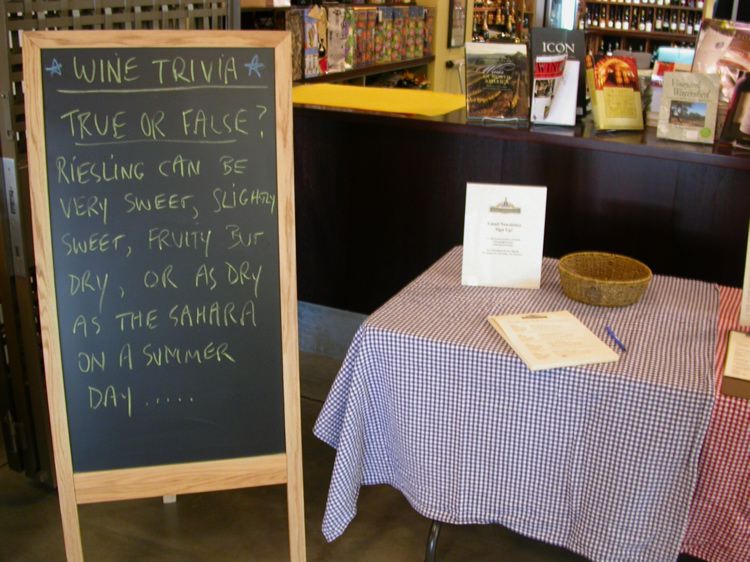 WINE TRIVIA
TRUE OR FALSE?
RIESLING CAN BE
VERY SWEET, SLIGHTLY
SWEET, FRUITY BUT
DRY, OR AS DRY
AS THE SAHARA
ON A SUMMER
DAY .....
ICON
WINE
Email Newsletter
Sign Up!